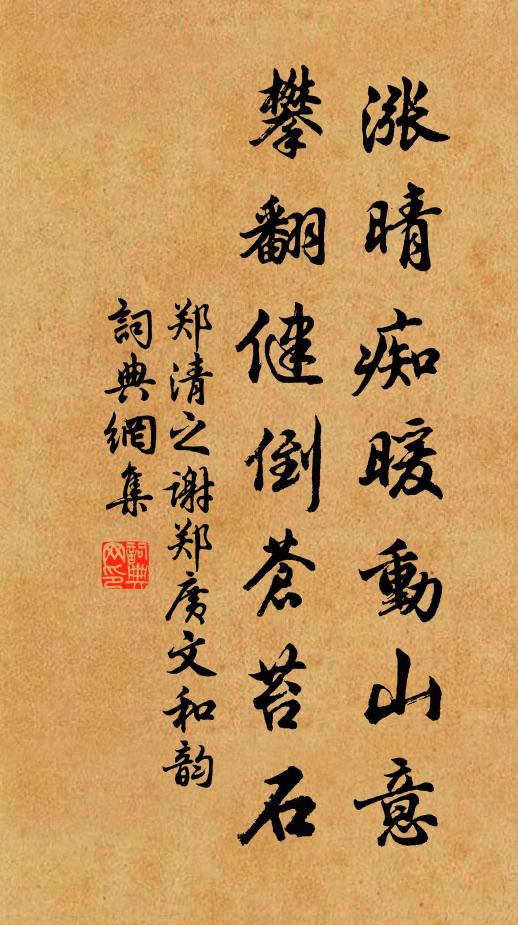 涨晴痴暖動山意
攀翻健倒蒼苔石
郑清之谢郑广文和韵
詞典網集
詞典网印